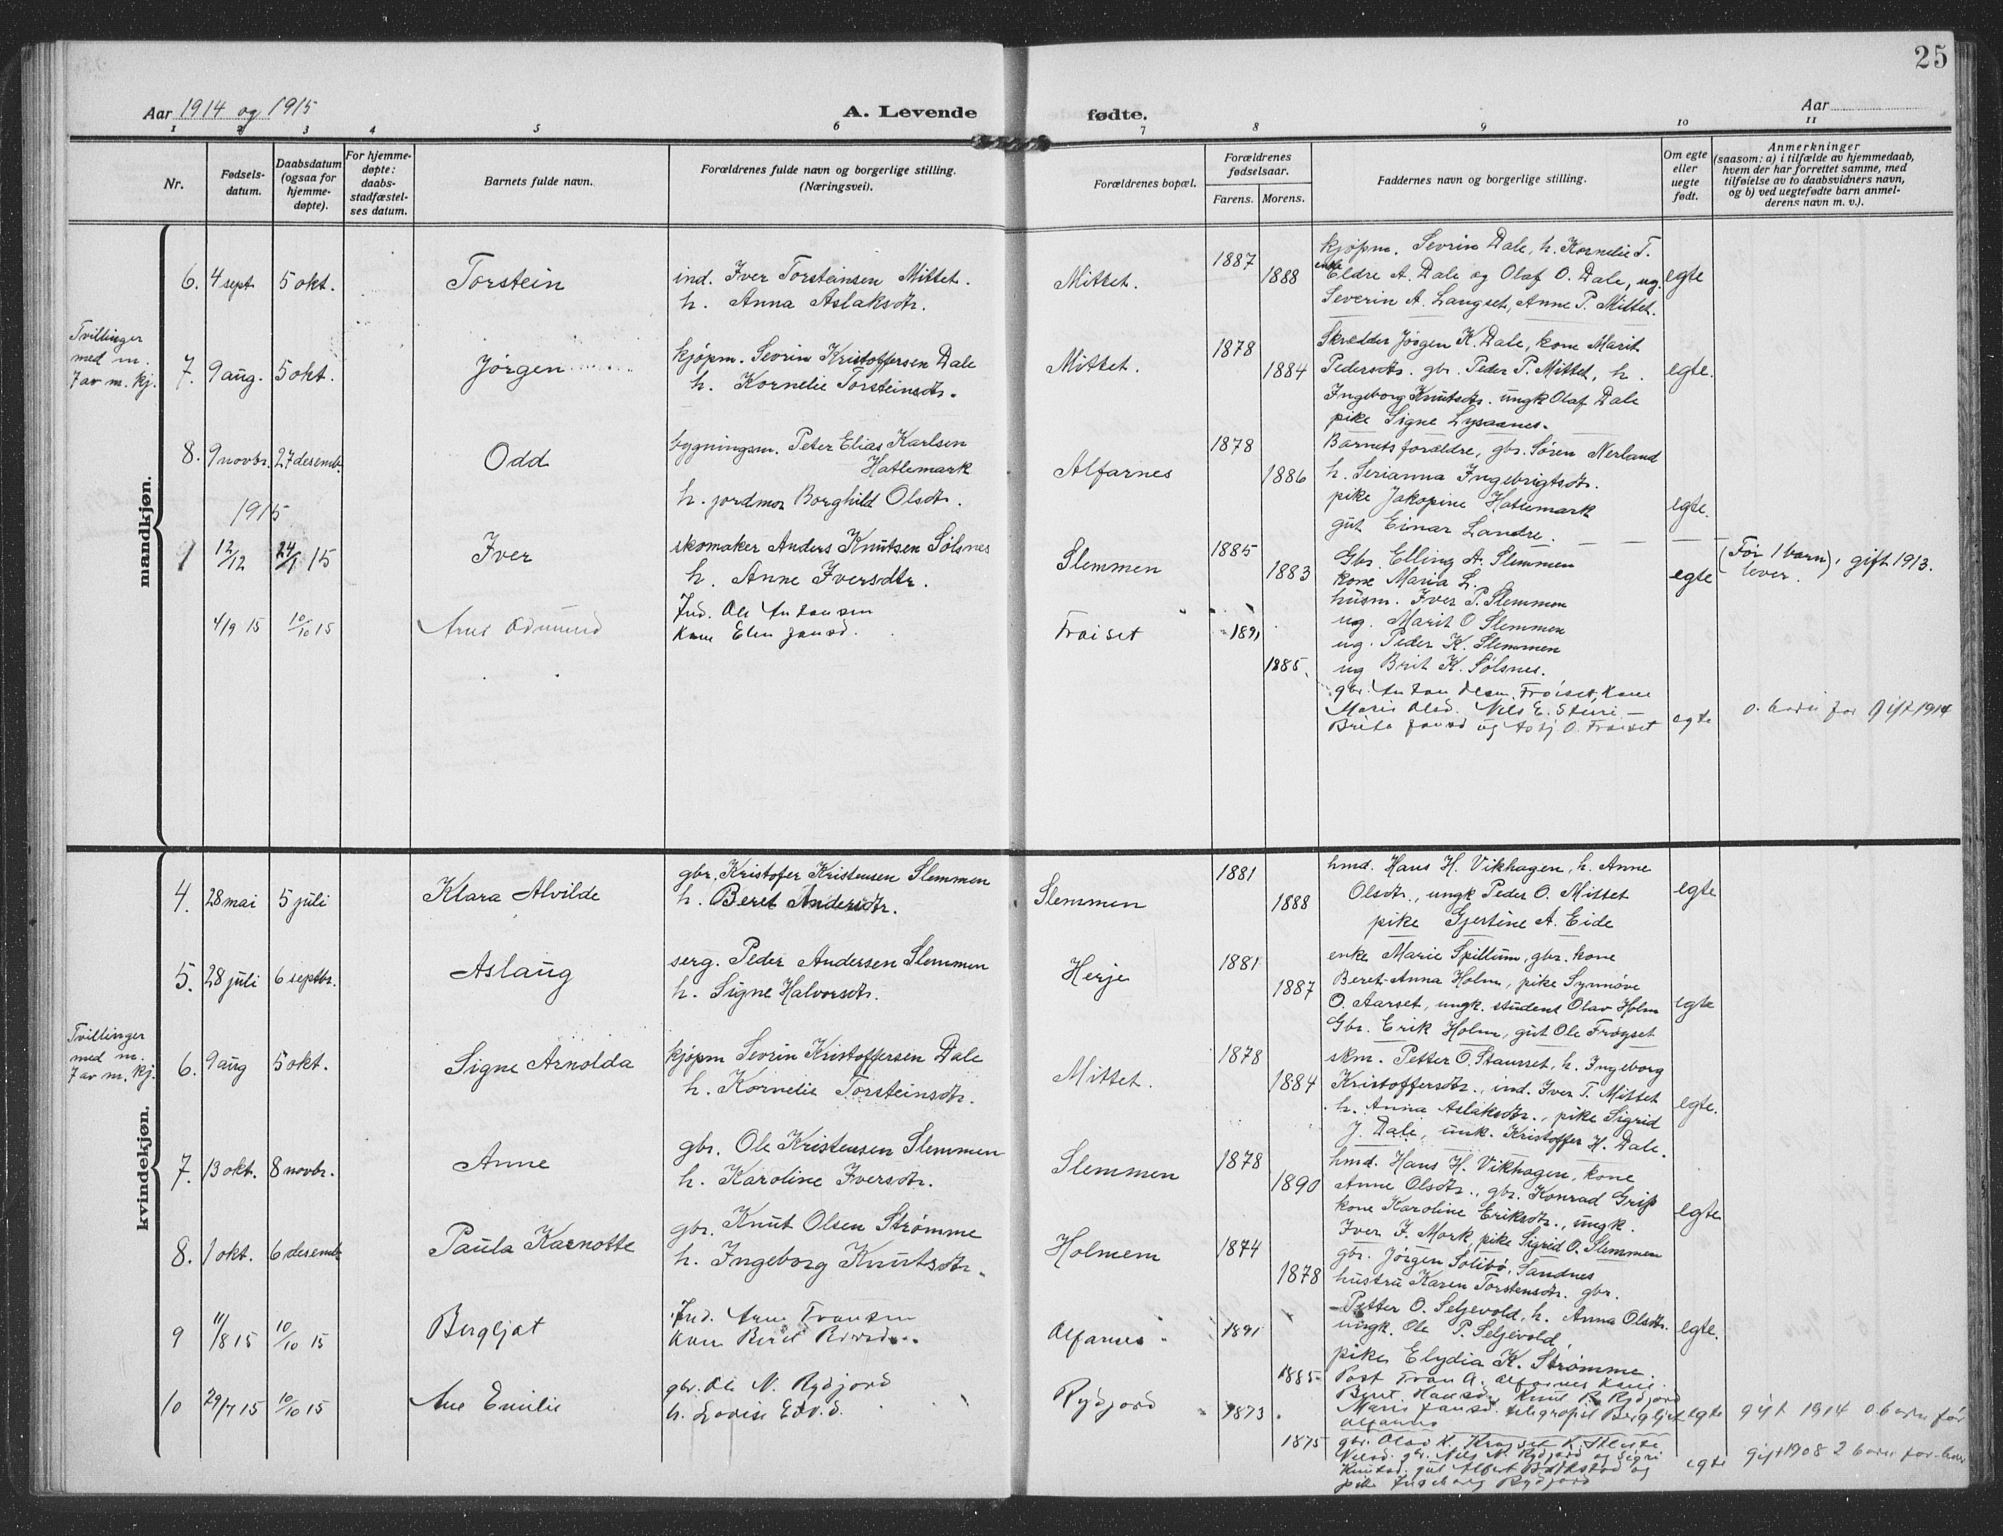 25
Aar 1914 og 1915
A. Levende fødte.
Aar
1 2 3 4 5 6 7 8 9 10 11
Nr.
Fødsels-
datum.
Daabsdatum
(ogsaa for
hjemme-
døpte).
For hjemme-
døpte:
daabs-
stadfæstel-
ses datum.
Barnets fulde navn.
Forældrenes fulde navn og borgerlige stilling.
(Næringsvei).
Forældrenes bopæl.
Forældrenes
fødselsaar.
Farens. Morens.
Faddernes navn og borgerlige stilling.
Om egte
eller
uegte
født.
Anmerkninger
(saasom: a) i tilfælde av hjemmedaab,
hvem der har forrettet samme, med
tilføielse av to daabsvidners navn,
og b) ved uegtefødte barn anmel-
derens navn m. v.).
mandkjøn.
6. 4 sept 5 okt. Torstein
ind. Iver Torsteinsen Mittet.
h. Anna Aslaksdtr.
Mittet.
1887
1888
kjøpm. Sevrin Dale, h. Kornelie T.
Eldre A. Dale og Olaf O. Dale, ug.
Severin A. Langset, Anne P. Mittet.
egte
Tvillinger
med m.
7 av m. kj.
7. 9 aug. 5 okt. Jørgen
kjøpm. Sevrin Kristoffersen Dale
h. Kornelie Torsteinsdtr.
Mittet.
1878
1884
Skrædder Jørgen K. Dale, kone Marit
Pedersdtr. gbr. Peder P. Mittet, h.
Ingeborg Knutsdtr. ungk Olaf Dale
pike Signe Lysaanes.
egte.
8. 9 novbr. 27 desembr Odd
bygningsm. Peter Elias Karlsen
Hatlemark
h. jordmor Borghild Olsdtr.
Alfarnes
1878
1886
Barnets forældre, gbr. Søren Nerland
h. Serianna Ingebrigtsdtr.
pike Jakopine Hatlemark
gut Einar Landre.
egte.
1915
1 12/12 24/1 15 Iver
skomaker Anders Knutsen Sølsnes
h. Anne Iversdtr.
Slemmen
1885
1883
Gbr. Elling A. Slemmen
kone Maria L.
husm. Iver P. Slemmen
ug. Marit O Slemmen
ug. Peder K. Slemmen
ug Brit K. Sølsnes.
egte
(For 1 barn), gift 1913.
lever.
4/9 15 10/10 15 Arne Odmund
Ind. Ole Antonsen
Kone Elen Jonsd.
Frøiset
1891
1885.
gbr. Anton Olsen. Frøiset, Kone
Marie Olsd. Nils E.
Brite Jonsd og O. Frøiset
egte
0. barn før gift 1914
kvindekjøn.
4. 28 mai 5 juli Klara Alvilde
gbr. Kristofer Kristensen Slemmen
h. Beret Andersdtr.
Slemmen
1881
1888
hmd. Hans H. Vikhagen, h. Anne
Olsdtr., ungk Peder O. Mittet
pike Gjertine A. Eide
egte
5. 28 juli 6 septbr. Aslaug
serg. Peder Andersen Slemmen
h. Signe Halvorsdtr.
Herje
1881
1887
enke Marie Spillum, gbr. kone
Beret-Anna Holm, pike Synnøve
O. Aarset, ungk. student Olav Holm
Gbr. Erik Holm, gut Ole Frøyset
egte
Tvillinger
med m.
7 av m. kj.
6. 9 aug 5 okt. Signe Arnolda
kjøpm Sevrin Kristoffersen Dale
h. Kornelie Torsteinsdtr.
Mittet.
1878
1884
skm. Petter O. Staurset, h. Ingeborg
Kristoffersdtr., ind. Iver T. Mittet
h. Anna Aslaksdtr., pike Sigrid
J. Dale, unk. Kristoffer H. Dale.
egte.
7. 13 okt. 8 novbr. Anne
gbr. Ole Kristensen Slemmen
h. Karoline Iversdtr.
Slemmen
1878
1890
hmd. Hans H. Vikhagen, kone
Anne Olsdtr., gbr. Konrad Grip
kone Karoline Eriksdtr., ungk.
Iver J. Mork, pike Sigrid O. Slemmen
egte
8. 1 okt. 6 desembr Paula Karnotte
gbr. Knut Olsen Strømme
h. Ingeborg Knutsdtr.
Holmem
1874
1878
gbr. Jørgen Solibø, Sandnes
hustru Karen Torstensdtr. gbr.
Petter O. Seljevold, h. Anna Olsdtr.
ungk. Ole P. Seljevold,
pike Elydia K. Strømme.
egte.
9 11/8 15 10/10 15 Bergljot
Ind. Arne Fransen
Kone Beret
Alfarnes.
1891
1885
Post Fran A. Alfarnes Kone
Beret Hansd, Knut B. Rydjord
Marie Jonsd. telegrafist Bergljot
Alfarnes
egte
gift 1914 0. barn før
10 29/7 15 10/10 15 Ane Emilie
gbr. Ole N. Rydjord
h. Lovise Edv.d.
Rydjord
1873
1875
gbr. Olav K.
Nilsd. gbr. Nils N. Rydjord og Sigri
Knutsd. gut Albert og
pike Ingeborg Rydjord
egte
gift 1908 2 barn før lever